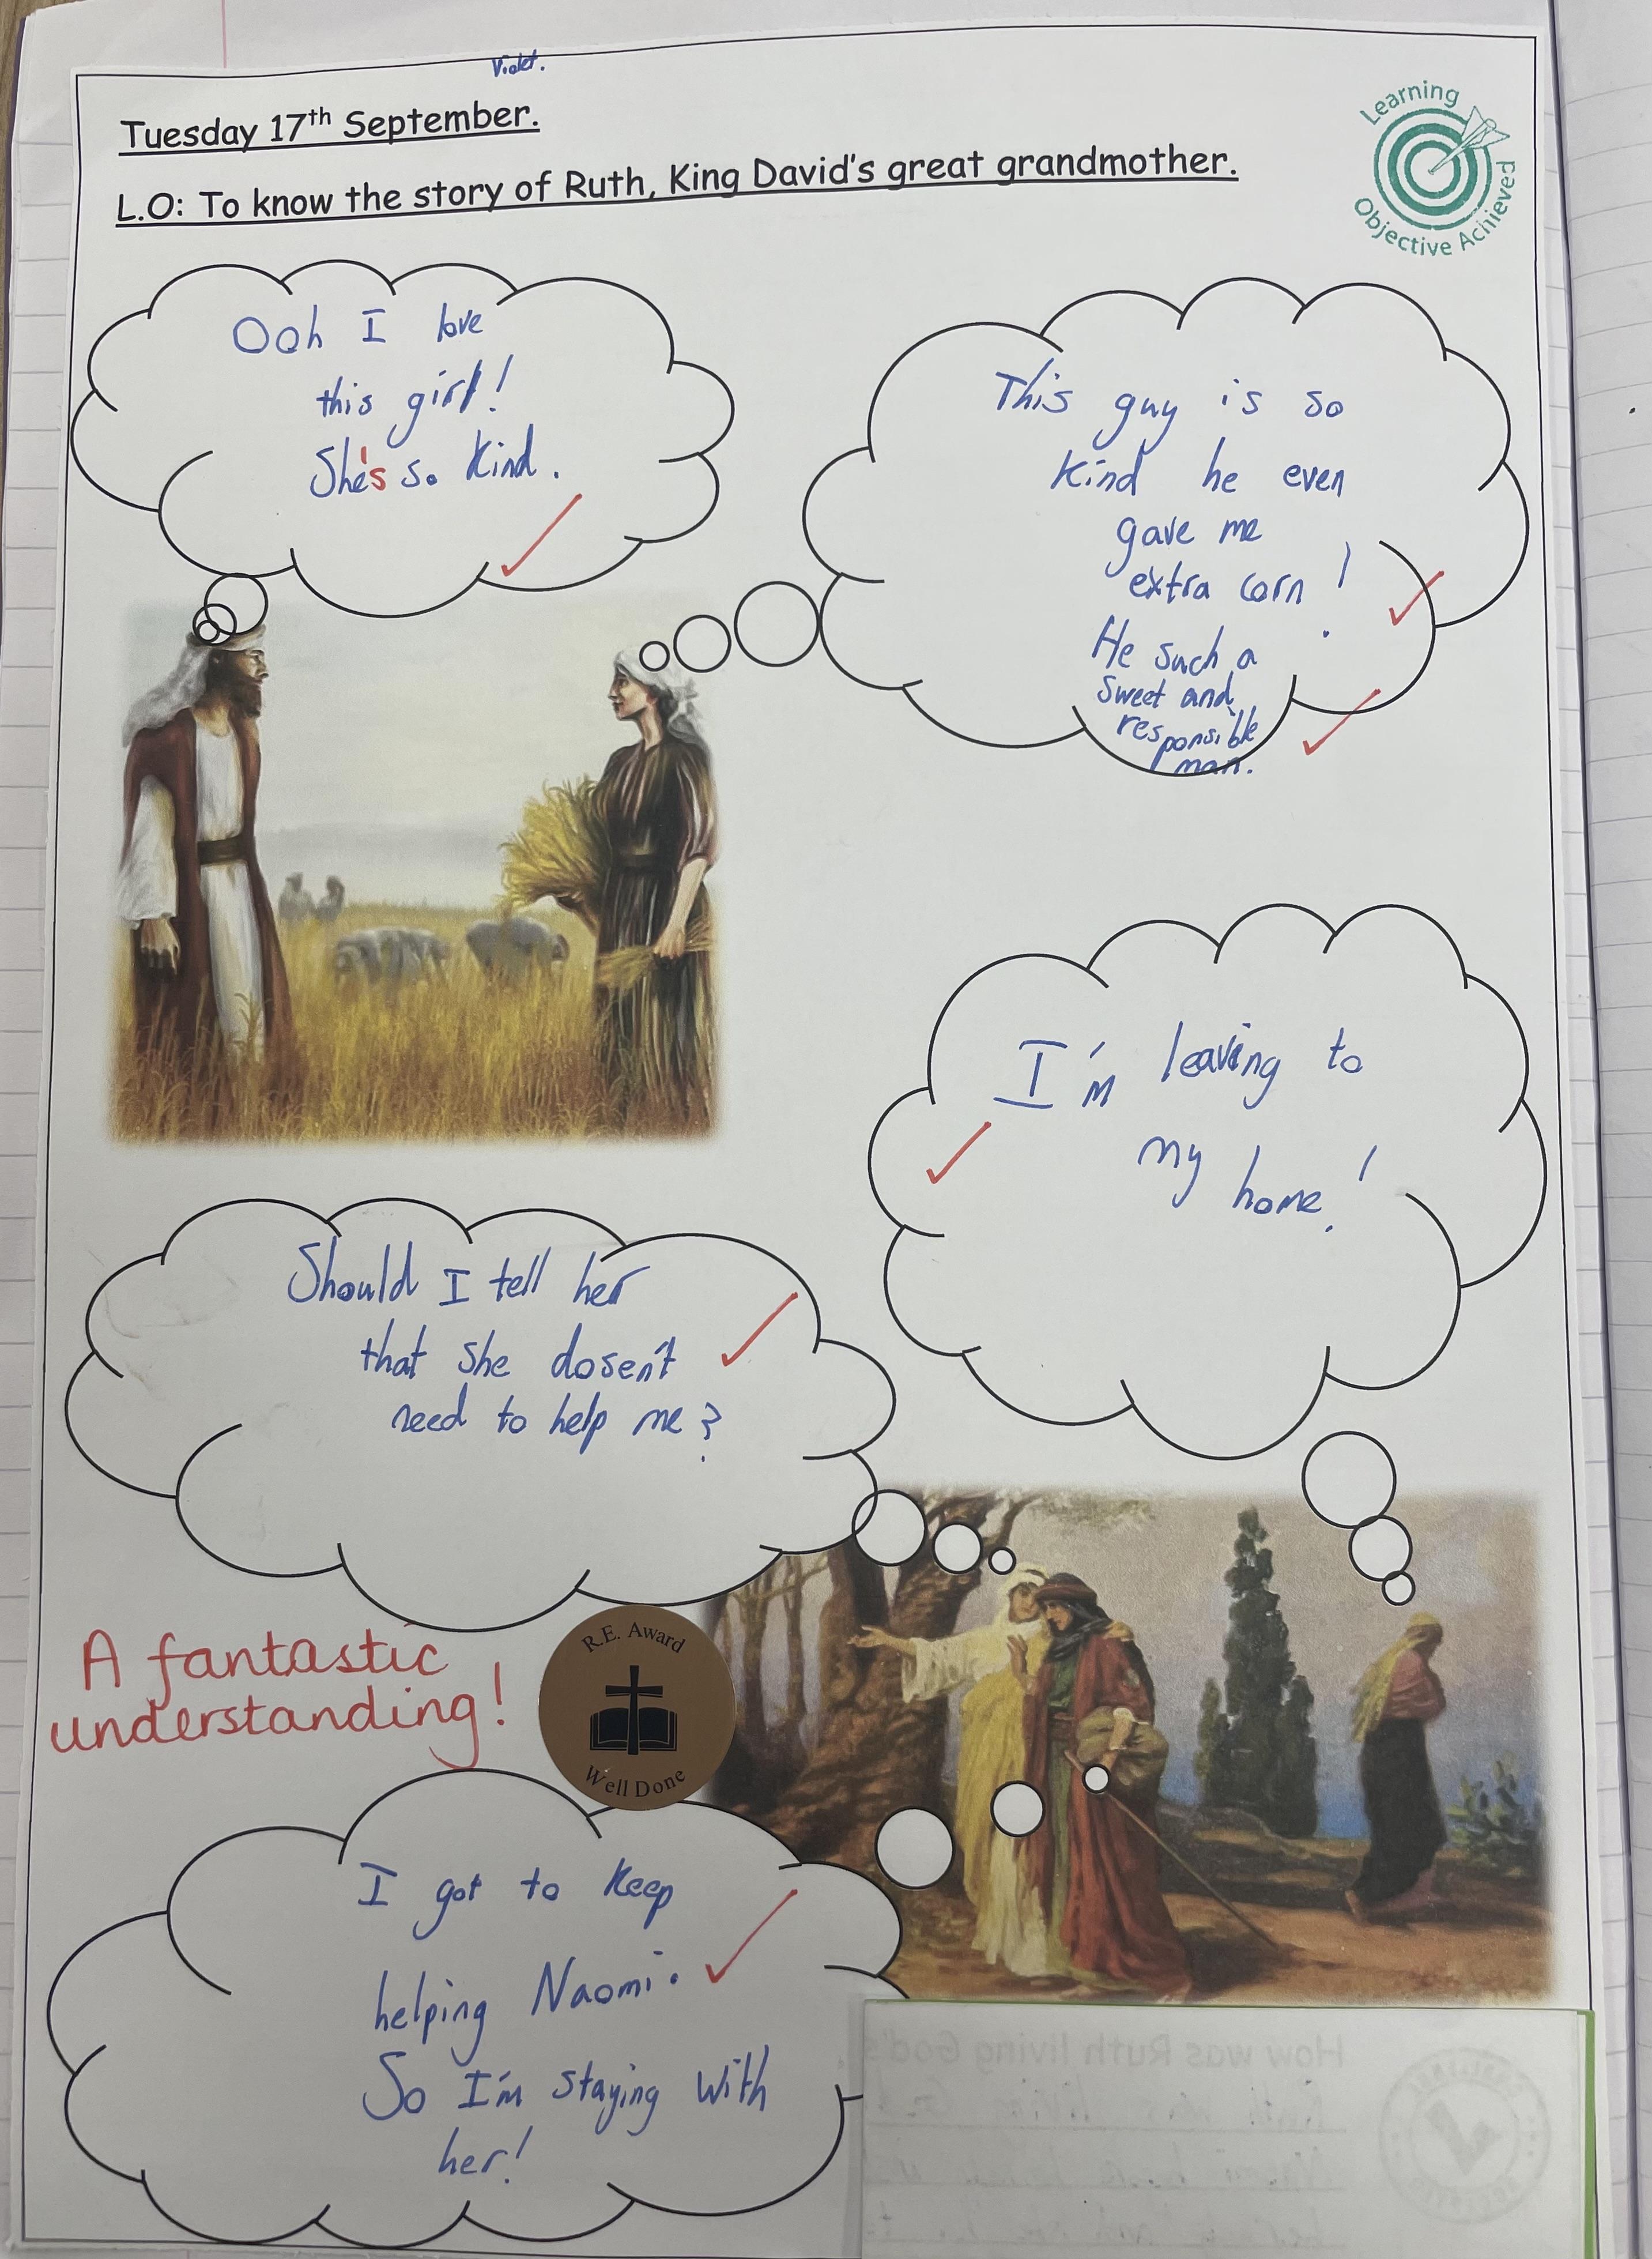 Violet.
Tuesday 17th September.
L.O: To know the story of Ruth, King David's great grandmother.
Learning
Objective Achieved
Ooh I love
this girl!
She's so kind.
This guy is so
kind he even
gave me
extra corn!
He such a
sweet and
responsible
man.
I'm leaving to
my home!
Should I tell her
that she dosen't
need to help me?
A fantastic
understanding!
R.E. Award
Well Done
I got to keep
helping Naomi.
So I'm staying with
her!
How was Ruth living God's